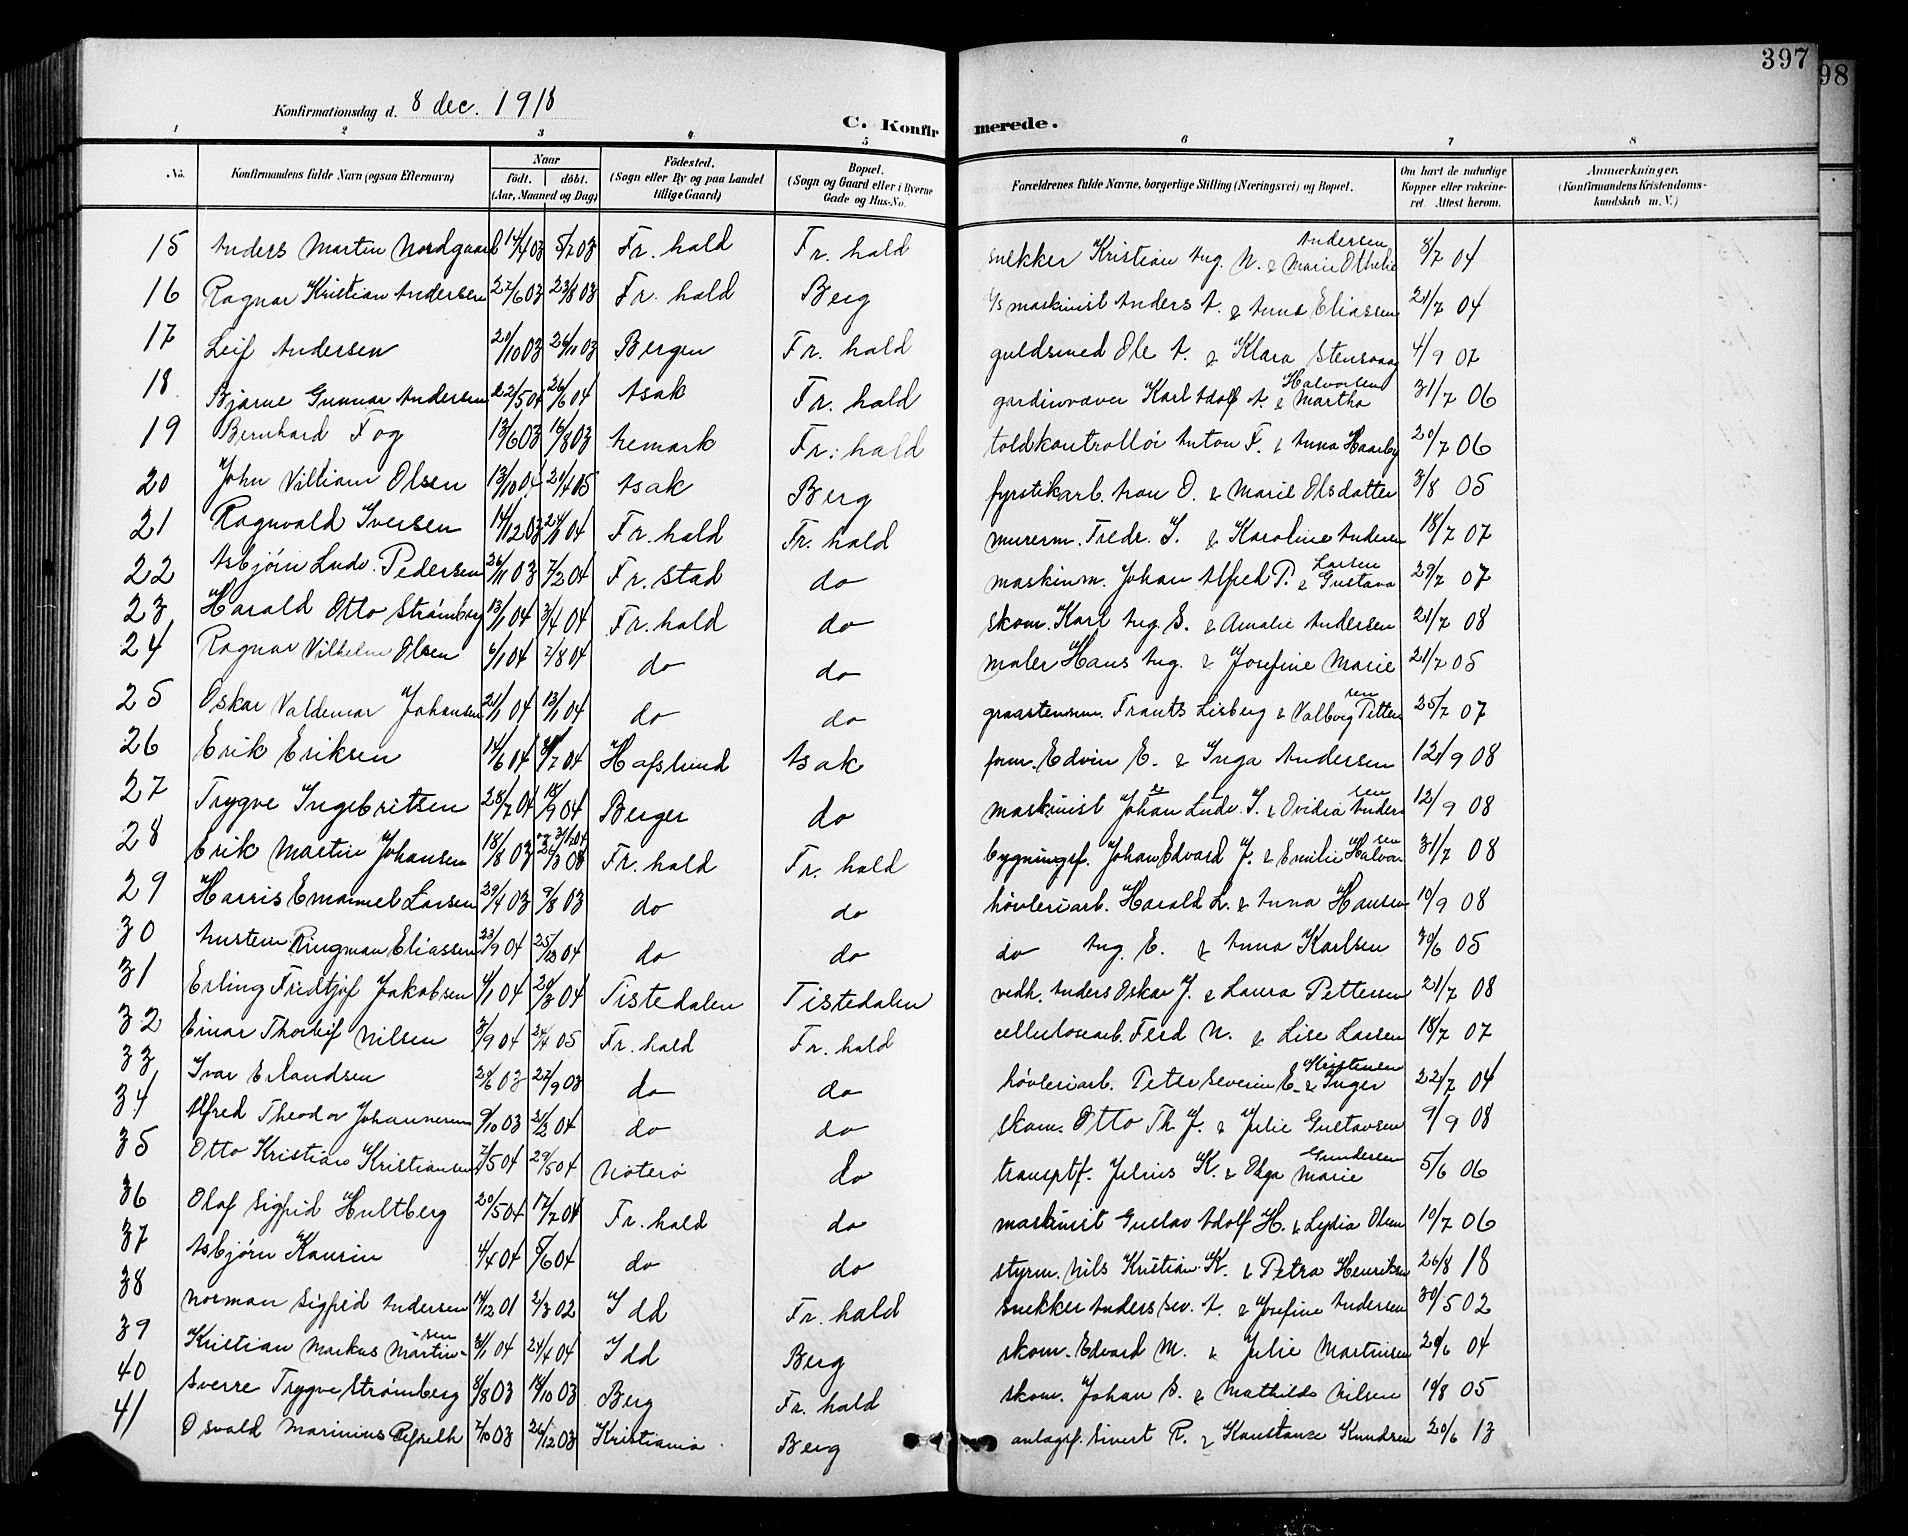 397
98
Konfirmationsdag d. 8 dec. 1918
C. Konfirmerede.
1 2 3 4 5 6 7 8
No. Konfirmandens fulde Navn (ogsaa Efternavn) Naar födt. döbt. (Aar, Maaned og Dag) Födested. (Sogn eller By og paa Landet tillige Gaard) Bopæl. (Sogn og Gaard eller i Byerne Gade og Hus-No. Forældrenes fulde Navne, borgerlige Stilling (Næringsvei) og Bopæl. Om havt de naturlige Kopper eller vakcineret. Attest herom. Anmærkninger. (Konfirmandens Kristendomskundskab m. V.)
15 Anders Martin Nordgaard 14/4 03 5/7 03 Fr. hald Fr. hald snekker Kristian Aug. N. & Marie Othelie Andersen 8/7 04
16 Ragnar Kristian Andersen 27/6 03 23/8 03 Fr. hald Berg maskinist Anders A. & Anna Eliassen 21/7 04
17 Leif Andersen 20/10 03 26/11 03 Bergen Fr. hald guldsmed Ole A. & Klara 4/9 07
18 Bjarne Gunnar Andersen 22/5 04 26/6 04 Asak Fr. hald gardinvæver Karl Adolf A. & Martha Halvorsen 31/7 06
19 Bernhard Fog 13/6 03 16/8 03 Aremark Fr. hald toldkontrollör Anton F. & Anna Haarby 20/7 06
20 John Villiam Olsen 13/10 04 21/4 05 Asak Berg fyrstikarb. Aron O. & Marie Olsdatter 3/8 05
21 Ragnvald Iversen 14/12 03 24/1 04 Fr. hald Fr. hald murerm. Fredr. I. & Karoline Andersen 18/7 07
22 Asbjörn Ludv. Pedersen 26/11 03 7/2 04 Fr. stad do maskinm. Johan Alfred P. & Gustava Larsen 29/7 07
23 Harald Otto Strömberg 13/1 04 3/4 04 Fr. hald do skom. Karl Aug. S. & Amalie Andersen 21/7 08
24 Ragnar Vilhelm Olsen 6/1 04 7/8 04 do do maler Hans Aug. & Josefine Marie 21/7 05
25 Oskar Valdemar Johansen 21/1 04 13/1 04 do do graastensm. Frants Lisberg & Valborg Pettersen 25/7 07
26 Erik Eriksen 14/6 04 /7 04 Hafslund Asak form. Edvin E. & Inga Andersen 12/9 08
27 Trygve Ingebritsen 28/7 04 18/9 04 Berger do maskinist Johan Ludv. I. & Ovidia Andersen 12/9 08
28 Erik Martin Johansen 18/8 03 26/3 08 Fr. hald Fr. hald bygningsf. Johan Edvard J. & Emilie Halvorsen 31/7 08
29 Harris Emanuel Larsen 29/4 03 9/8 03 do do hövleriarb. Harald L. & Anna Hansen 10/9 08
30 Austein Ringman Eliassen 23/9 04 25/12 04 do do do Aug. E. & Anna Karlsen 30/6 05
31 Erling Fridtjof Jakobsen 4/1 04 20/3 04 Tistedalen Tistedalen vedh. Anders Oskar J. & Laura Pettersen 21/7 08
32 Einar Thorleif Nilsen 3/9 04 24/4 05 Fr. hald Fr. hald cellulosearb. Ferd N. & Lise Larsen 18/7 07
33 Ivar Erlandsen 28/6 03 27/9 03 do do hövleriarb. Peter Severin E. & Inger Kristensen 22/7 04
34 Alfred Theodor Johannesen 9/10 03 21/2 04 do do skom. Otto Th. J. & Julie Gustavsen 9/9 08
35 Otto Kristian Kristiansen 7/5 04 29/5 04 Nöterö do transptf. Julius K. & Olga Marie Gundersen 5/6 06
36 Olaf Sigfrid Hultberg 20/5 04 17/7 04 Fr. hald do maskinist Gustav Adolf H. & Lydia Olsen 10/7 06
37 Asbjörn Kaurin 4/4 04 5/6 04 do do styrm. Nils Kristian K. & Petra Henriksen 26/8 18
38 Norman Sigfrid Andersen 14/12 01 2/3 02 Idd Fr. hald snekker Anders Sev. A. & Josefine Andersen 30/5 02
39 Kristian Markus Martinsen 3/1 04 24/4 04 Idd Berg skom. Edvard M. & Julie Martinsen 20/6 04
40 Sverre Trygve Strömberg 8/8 03 18/10 03 Berg Fr. hald skom. Johan S. & Mathilde Nilsen 10/8 05
41 Osvald Marinius 7/10 03 26/12 03 Kristiania Berg anlagsf. Sivert R. & Konstanse Knudsen 20/6 13